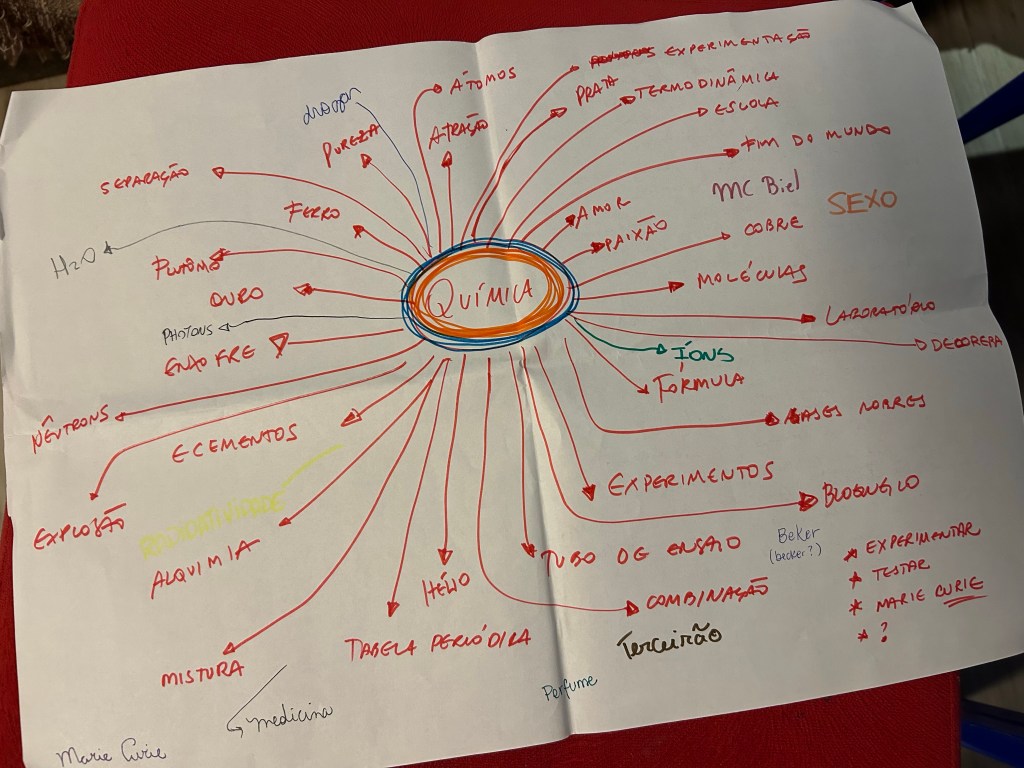 ÁTOMOS
EXPERIMENTAÇÃO
PRATA
TERMODINÂMICA
ESCOLA
PUREZA
ATRAÇÃO
FIM DO MUNDO
SEPARAÇÃO
MC Biel
SEXO
FERRO
AMOR
PAIXÃO
COBRE
H2O
OURO
QUÍMICA
MOLÉCULAS
PHOTONS
LABORATÓRIO
DECOREBA
ÍONS
FÓRMULA
NÊUTRONS
GASES NOBRES
ELEMENTOS
EXPLOSÃO
RADIOATIVIDADE
EXPERIMENTOS
ALQUIMIA
TUBO DE ENSAIO
Beker
(becker?)
* EXPERIMENTAR
* TESTAR
* MARIE CURIE
* ?
HÉLIO
COMBINAÇÃO
TABELA PERIÓDICA
Terceirão
MISTURA
Perfume
medicina
Marie Curie